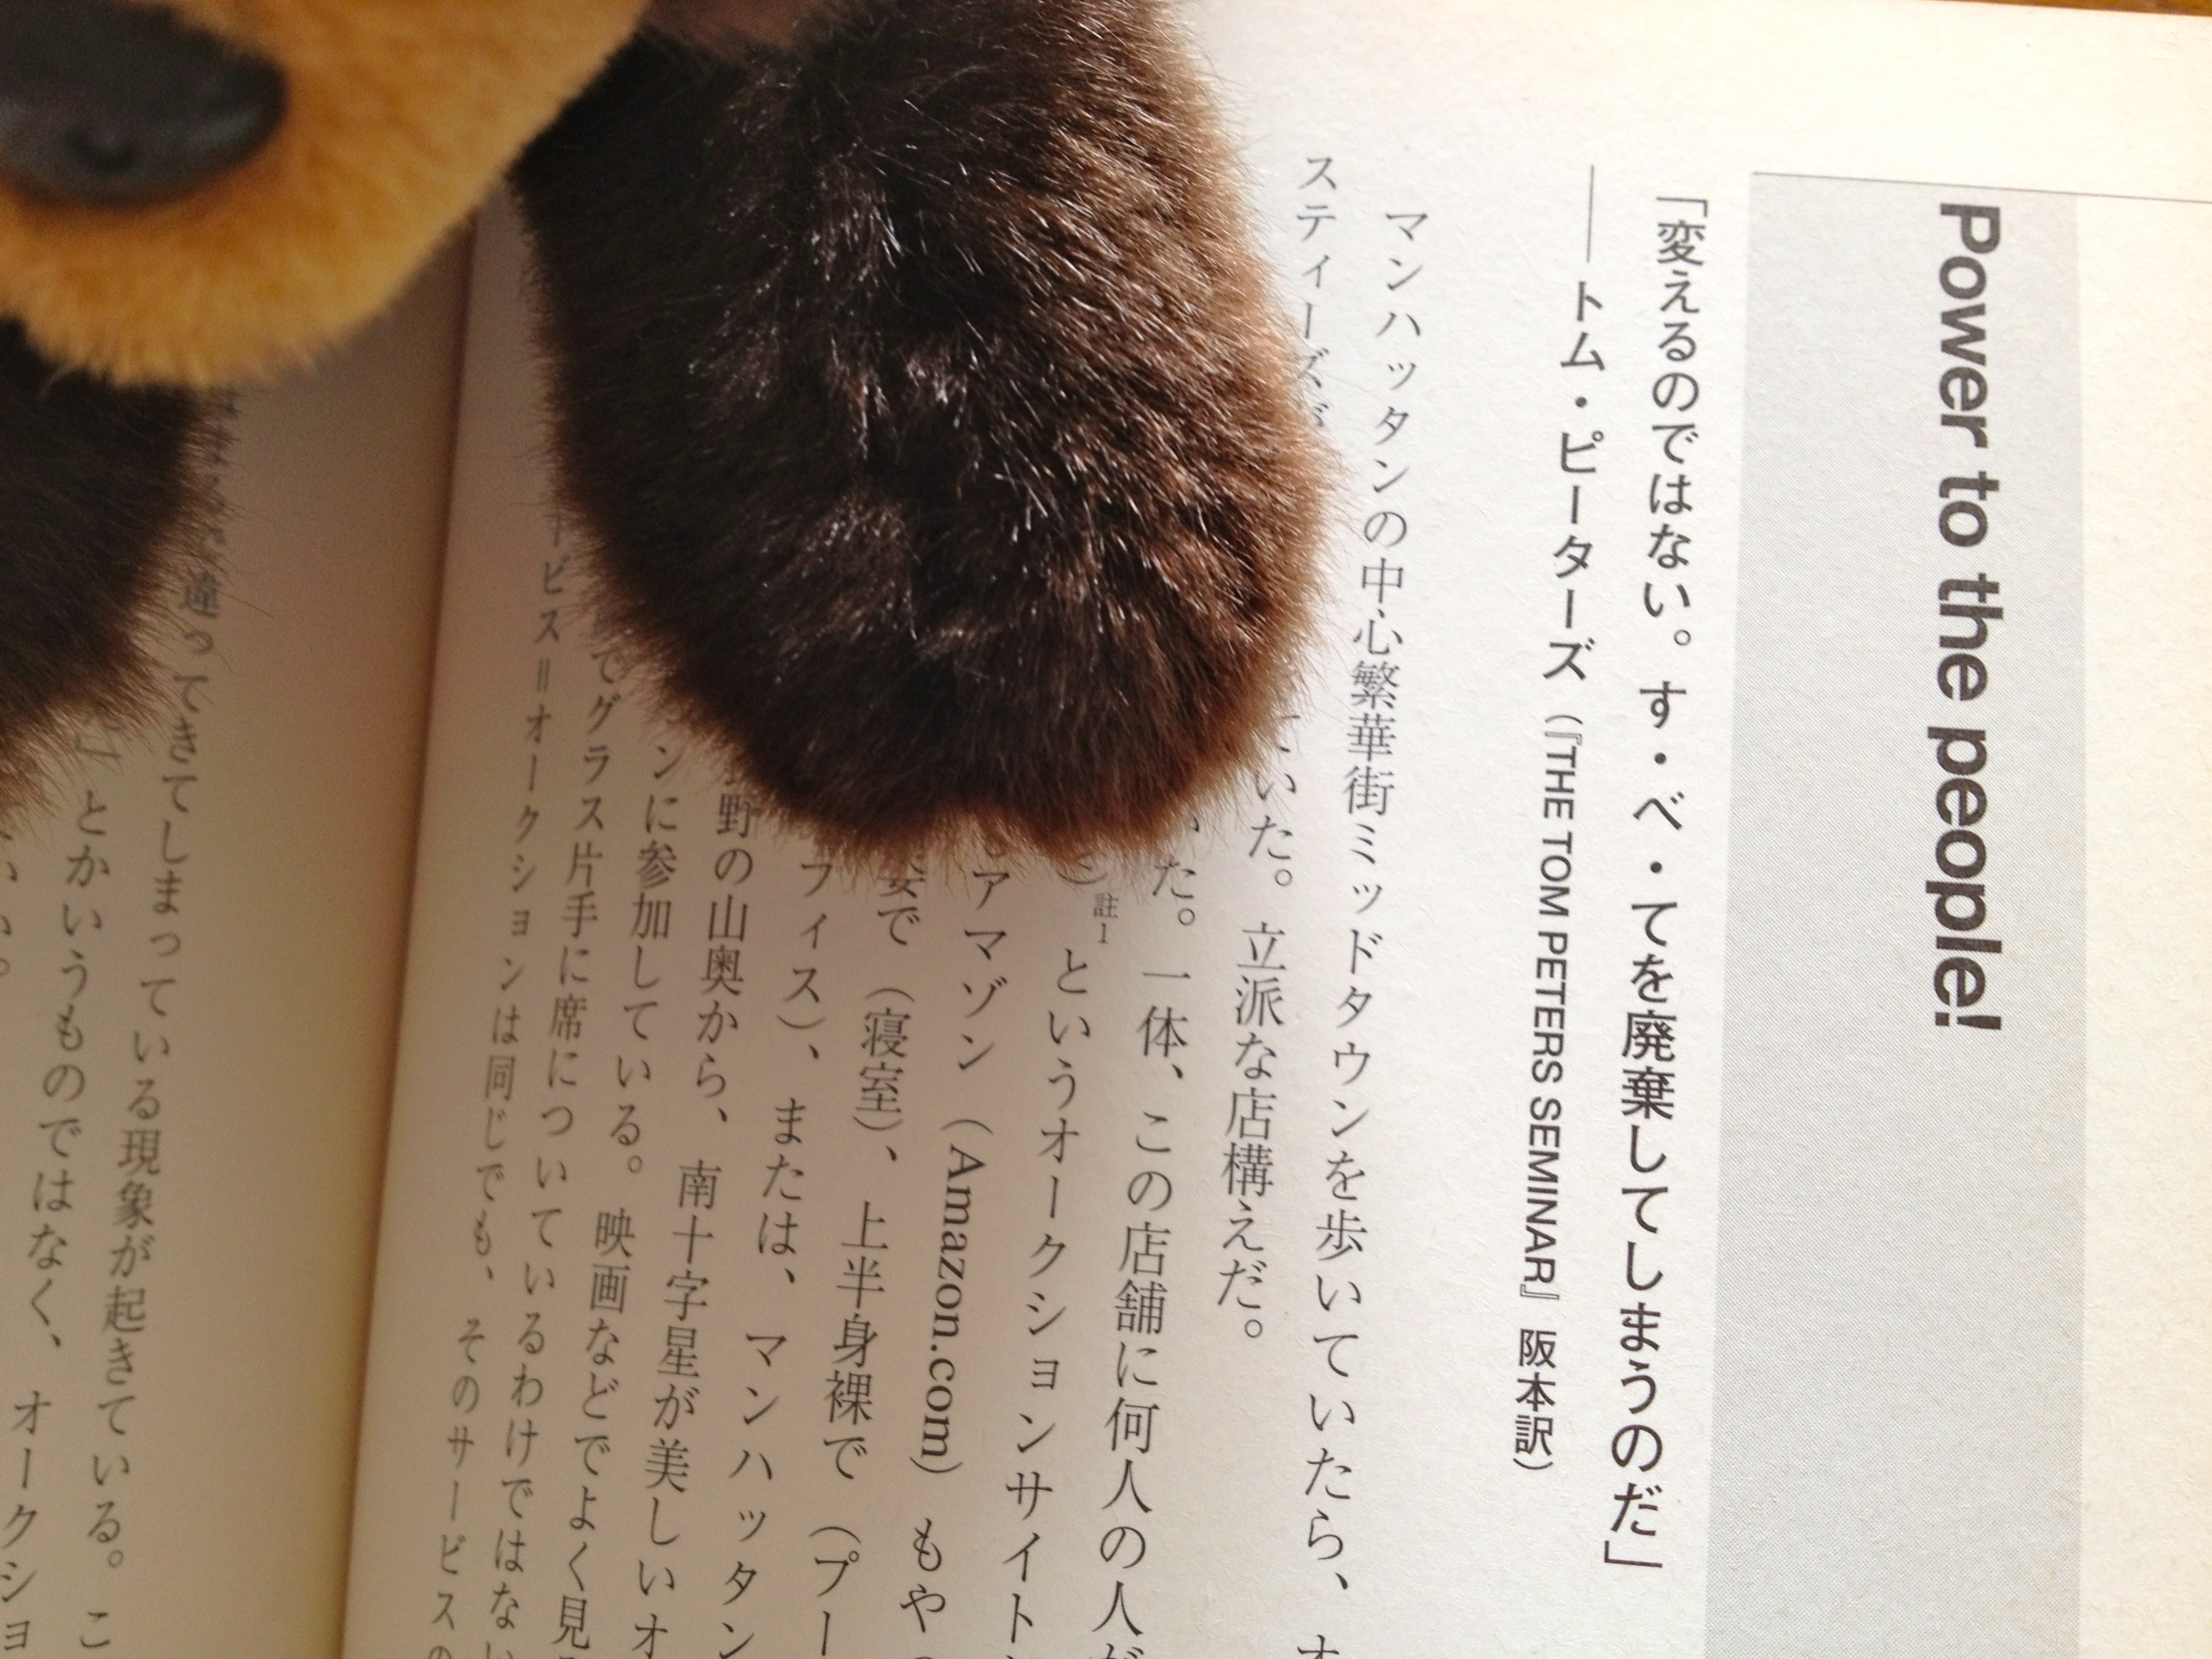 Power to the people!
「変えるのではない。す・べ・てを廃棄してしまうのだ」
── トム・ピーターズ（『THE TOM PETERS SEMINAR』阪本訳）
マンハッタンの中心繁華街ミッドタウンを歩いていたら、オ
スティーズが ていた。立派な店構えだ。
いた。一体、この店舗に何人の人が
註1 というオークションサイト
アマゾン（Amazon.com）もや
姿で（寝室）、上半身裸で（プー
フィス）、または、マンハッタン
野の山奥から、南十字星が美しいオ
ンに参加している。映画などでよく見
でグラス片手に席についているわけではない
ービス＝オークションは同じでも、そのサービスの
違ってきてしまっている現象が起きている。こ
」とかいうものではなく、オークショ
い。